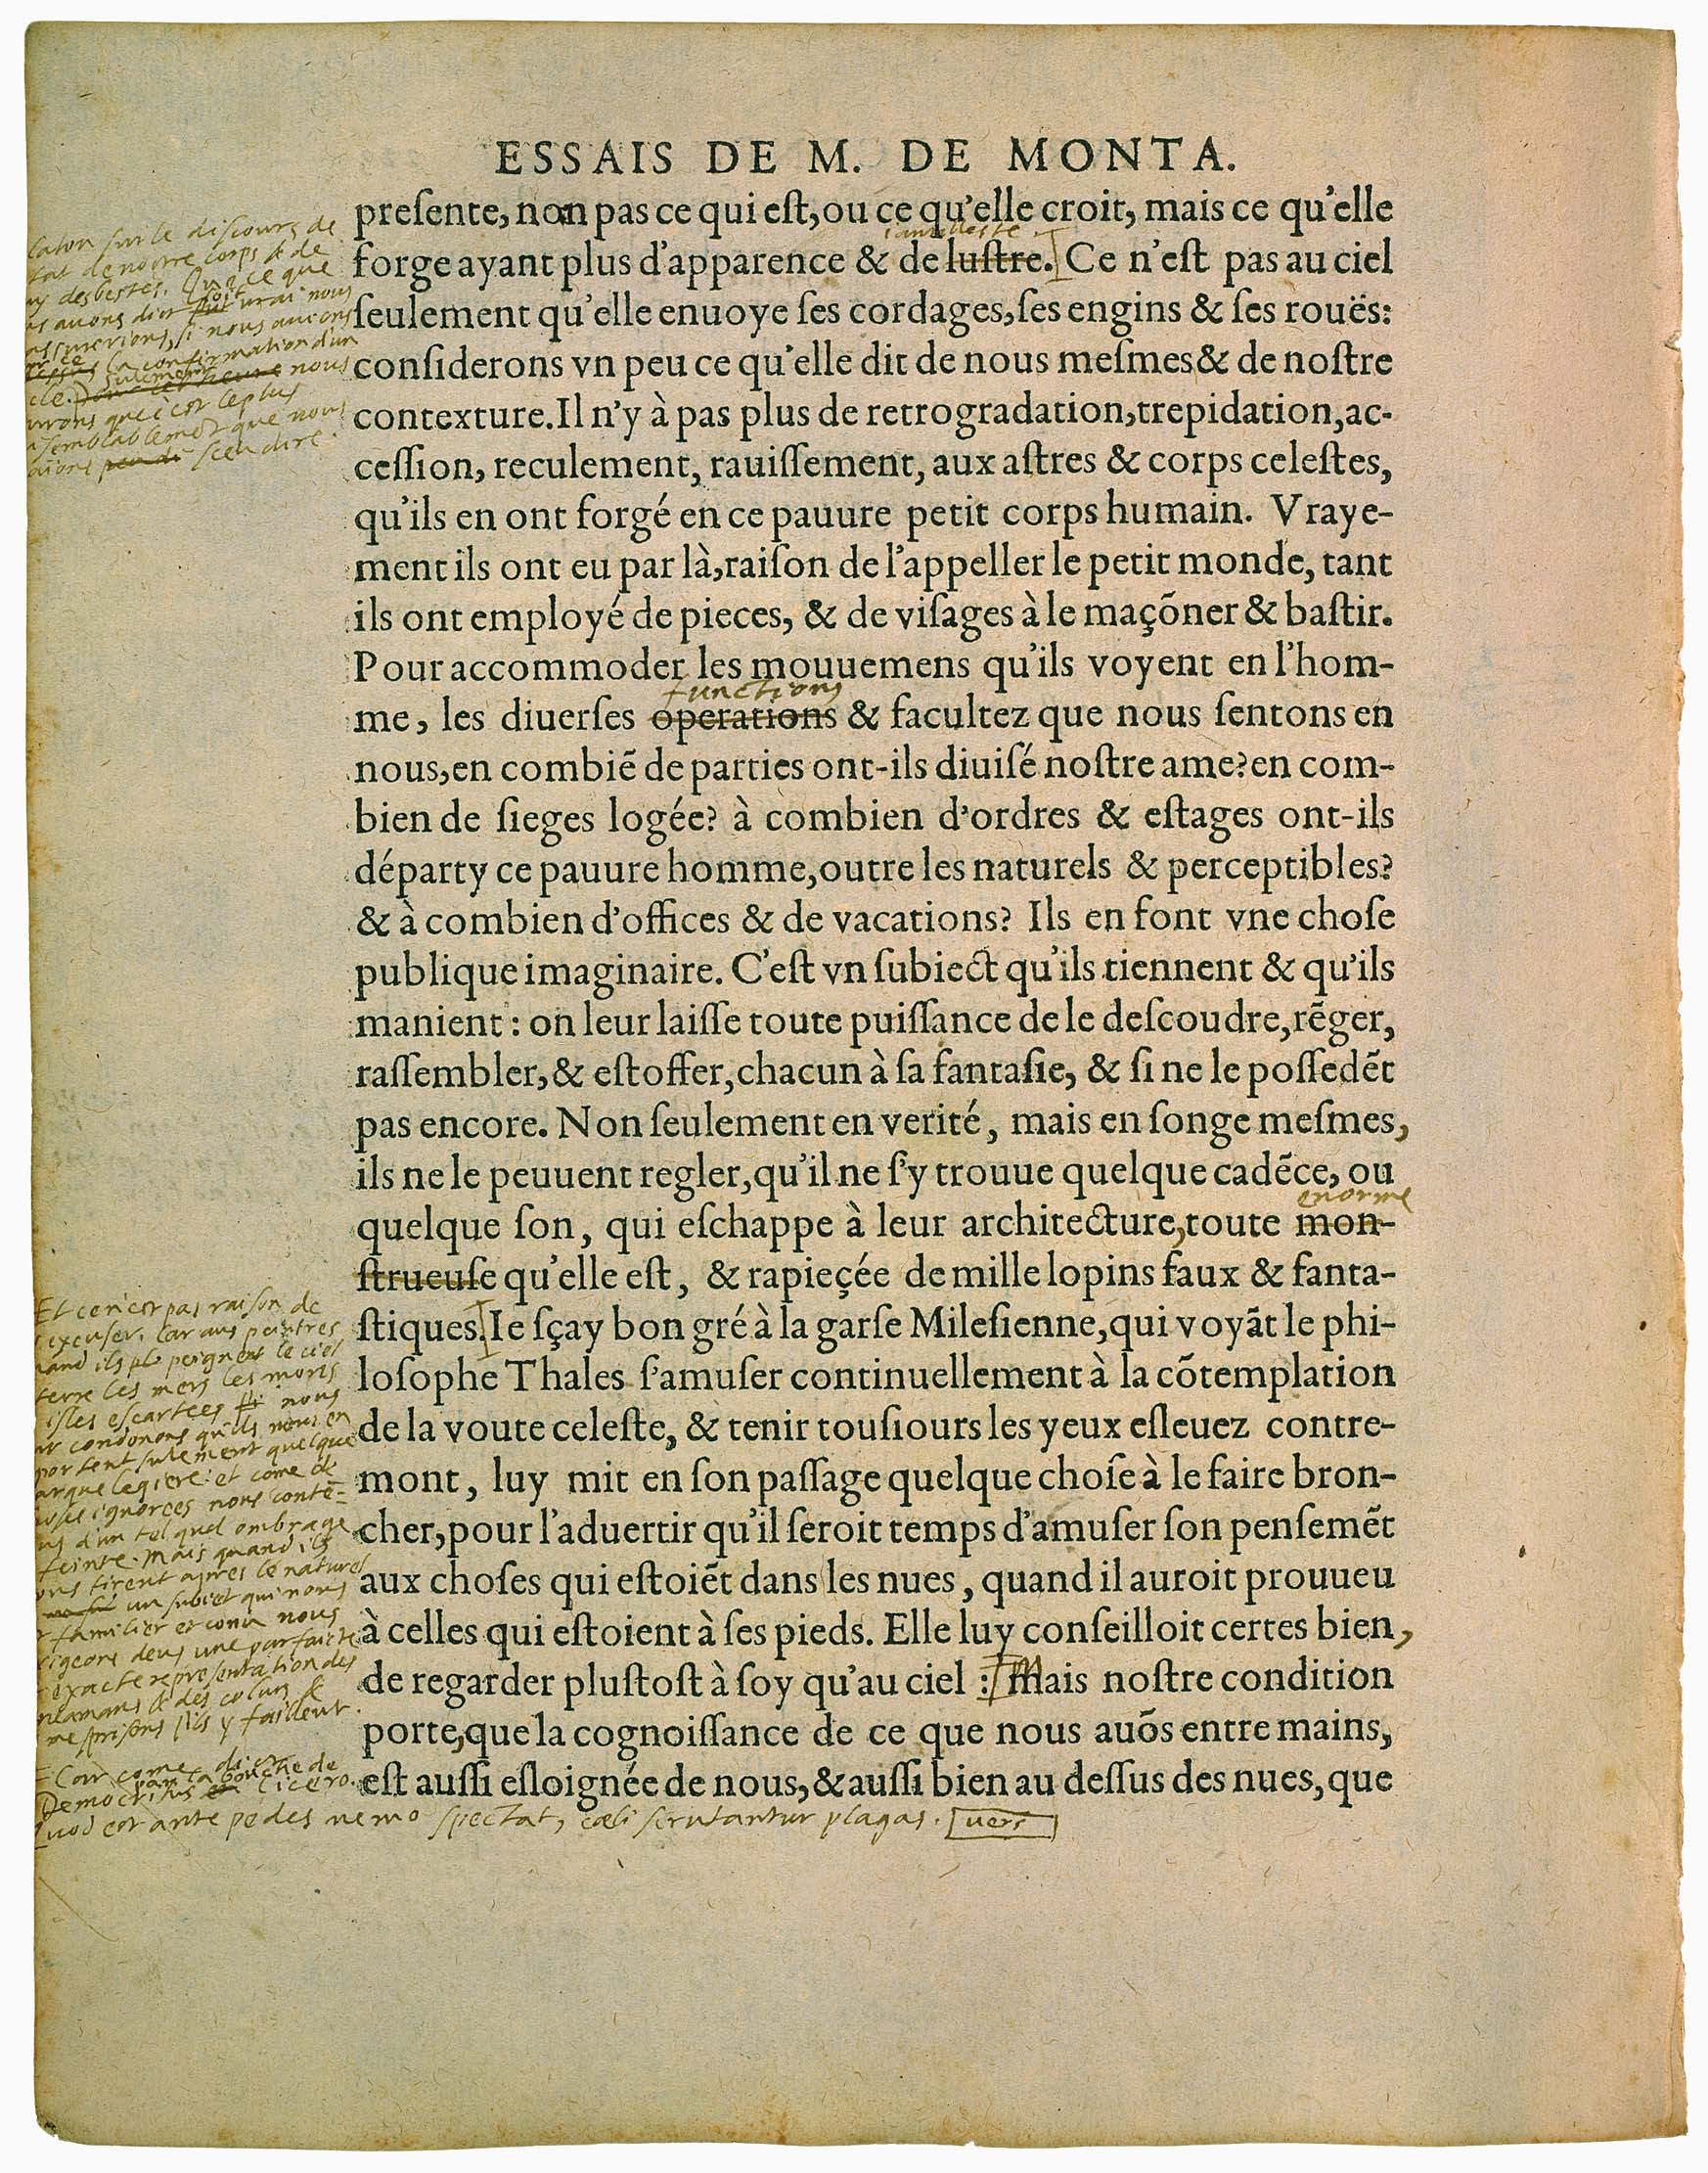 ESSAIS DE M. DE MONTA.
preſente, non pas ce qui eſt, ou ce qu'elle croit, mais ce qu'elle
forge ayant plus d'apparence & de luſtre. Ce n'eſt pas au ciel
ſeulement qu'elle enuoye ſes cordages, ſes engins & ſes rouës:
conſiderons vn peu ce qu'elle dit de nous meſmes & de noſtre
contexture. Il n'y à pas plus de retrogradation, trepidation, ac-
ceſſion, reculement, rauiſſement, aux aſtres & corps celeſtes,
qu'ils en ont forgé en ce pauure petit corps humain. Vraye-
ment ils ont eu par là, raiſon de l'appeller le petit monde, tant
ils ont employé de pieces, & de viſages à le maçõner & baſtir.
Pour accommoder les mouuemens qu'ils voyent en l'hom-
functions
me, les diuerſes operations & facultez que nous ſentons en
nous, en combiẽ de parties ont-ils diuiſé noſtre ame? en com-
bien de ſieges logée? à combien d'ordres & eſtages ont-ils
départy ce pauure homme, outre les naturels & perceptibles?
& à combien d'offices & de vacations? Ils en font vne choſe
publique imaginaire. C'eſt vn ſubiect qu'ils tiennent & qu'ils
manient: on leur laiſſe toute puiſſance de le deſcoudre, rẽger,
raſſembler, & eſtoffer, chacun à ſa fantaſie, & ſi ne le poſſedẽt
pas encore. Non ſeulement en verité, mais en ſonge meſmes,
ils ne le peuuent regler, qu'il ne ſ'y trouue quelque cadẽce, ou
enorme
quelque ſon, qui eſchappe à leur architecture, toute mon-
ſtrueuſe qu'elle eſt, & rapieçée de mille lopins faux & fanta-
ſtiques. Ie ſçay bon gré à la garſe Mileſienne, qui voyãt le phi-
loſophe Thales ſ'amuſer continuellement à la cõtemplation
de la voute celeſte, & tenir touſiours les yeux eſleuez contre-
mont, luy mit en ſon paſſage quelque choſe à le faire bron-
cher, pour l'aduertir qu'il ſeroit temps d'amuſer ſon penſemẽt
aux choſes qui eſtoiẽt dans les nues, quand il auroit prouueu
à celles qui eſtoient à ſes pieds. Elle luy conſeilloit certes bien,
de regarder pluſtoſt à ſoy qu'au ciel: Mais noſtre condition
porte, que la cognoiſſance de ce que nous auõs entre mains,
eſt auſſi eſloignée de nous, & auſſi bien au deſſus des nues, que
sur le discours de
de nostre corps & de
des bestes. Que ce que
auons dict vrai nous
si nous auions
la confirmation d'un
sulement nous
que c'est le plus
semblablement que nous
sceu dire
Et ce n'est pas raison de
excuser. Car aus peintres
ils peignent le ciel
terre les mers les monts
isles escartees nous
condonons qu'ils nous en
portent sulement quelque
legiere: et come de
ignorees nous contē-
d'un tel quel ombrage
feinte. Mais quand ils
tirent apres le naturel
un subiet qui nous
familier et conu nous
deus une parfaicte
exacte representation des
& des colurs &
mesprisons s'ils y faillent.
Car come dict
Democritus par la bouche de
Cicero.
Quod est ante pedes nemo spectat, cæli scrutantur plagas. vers